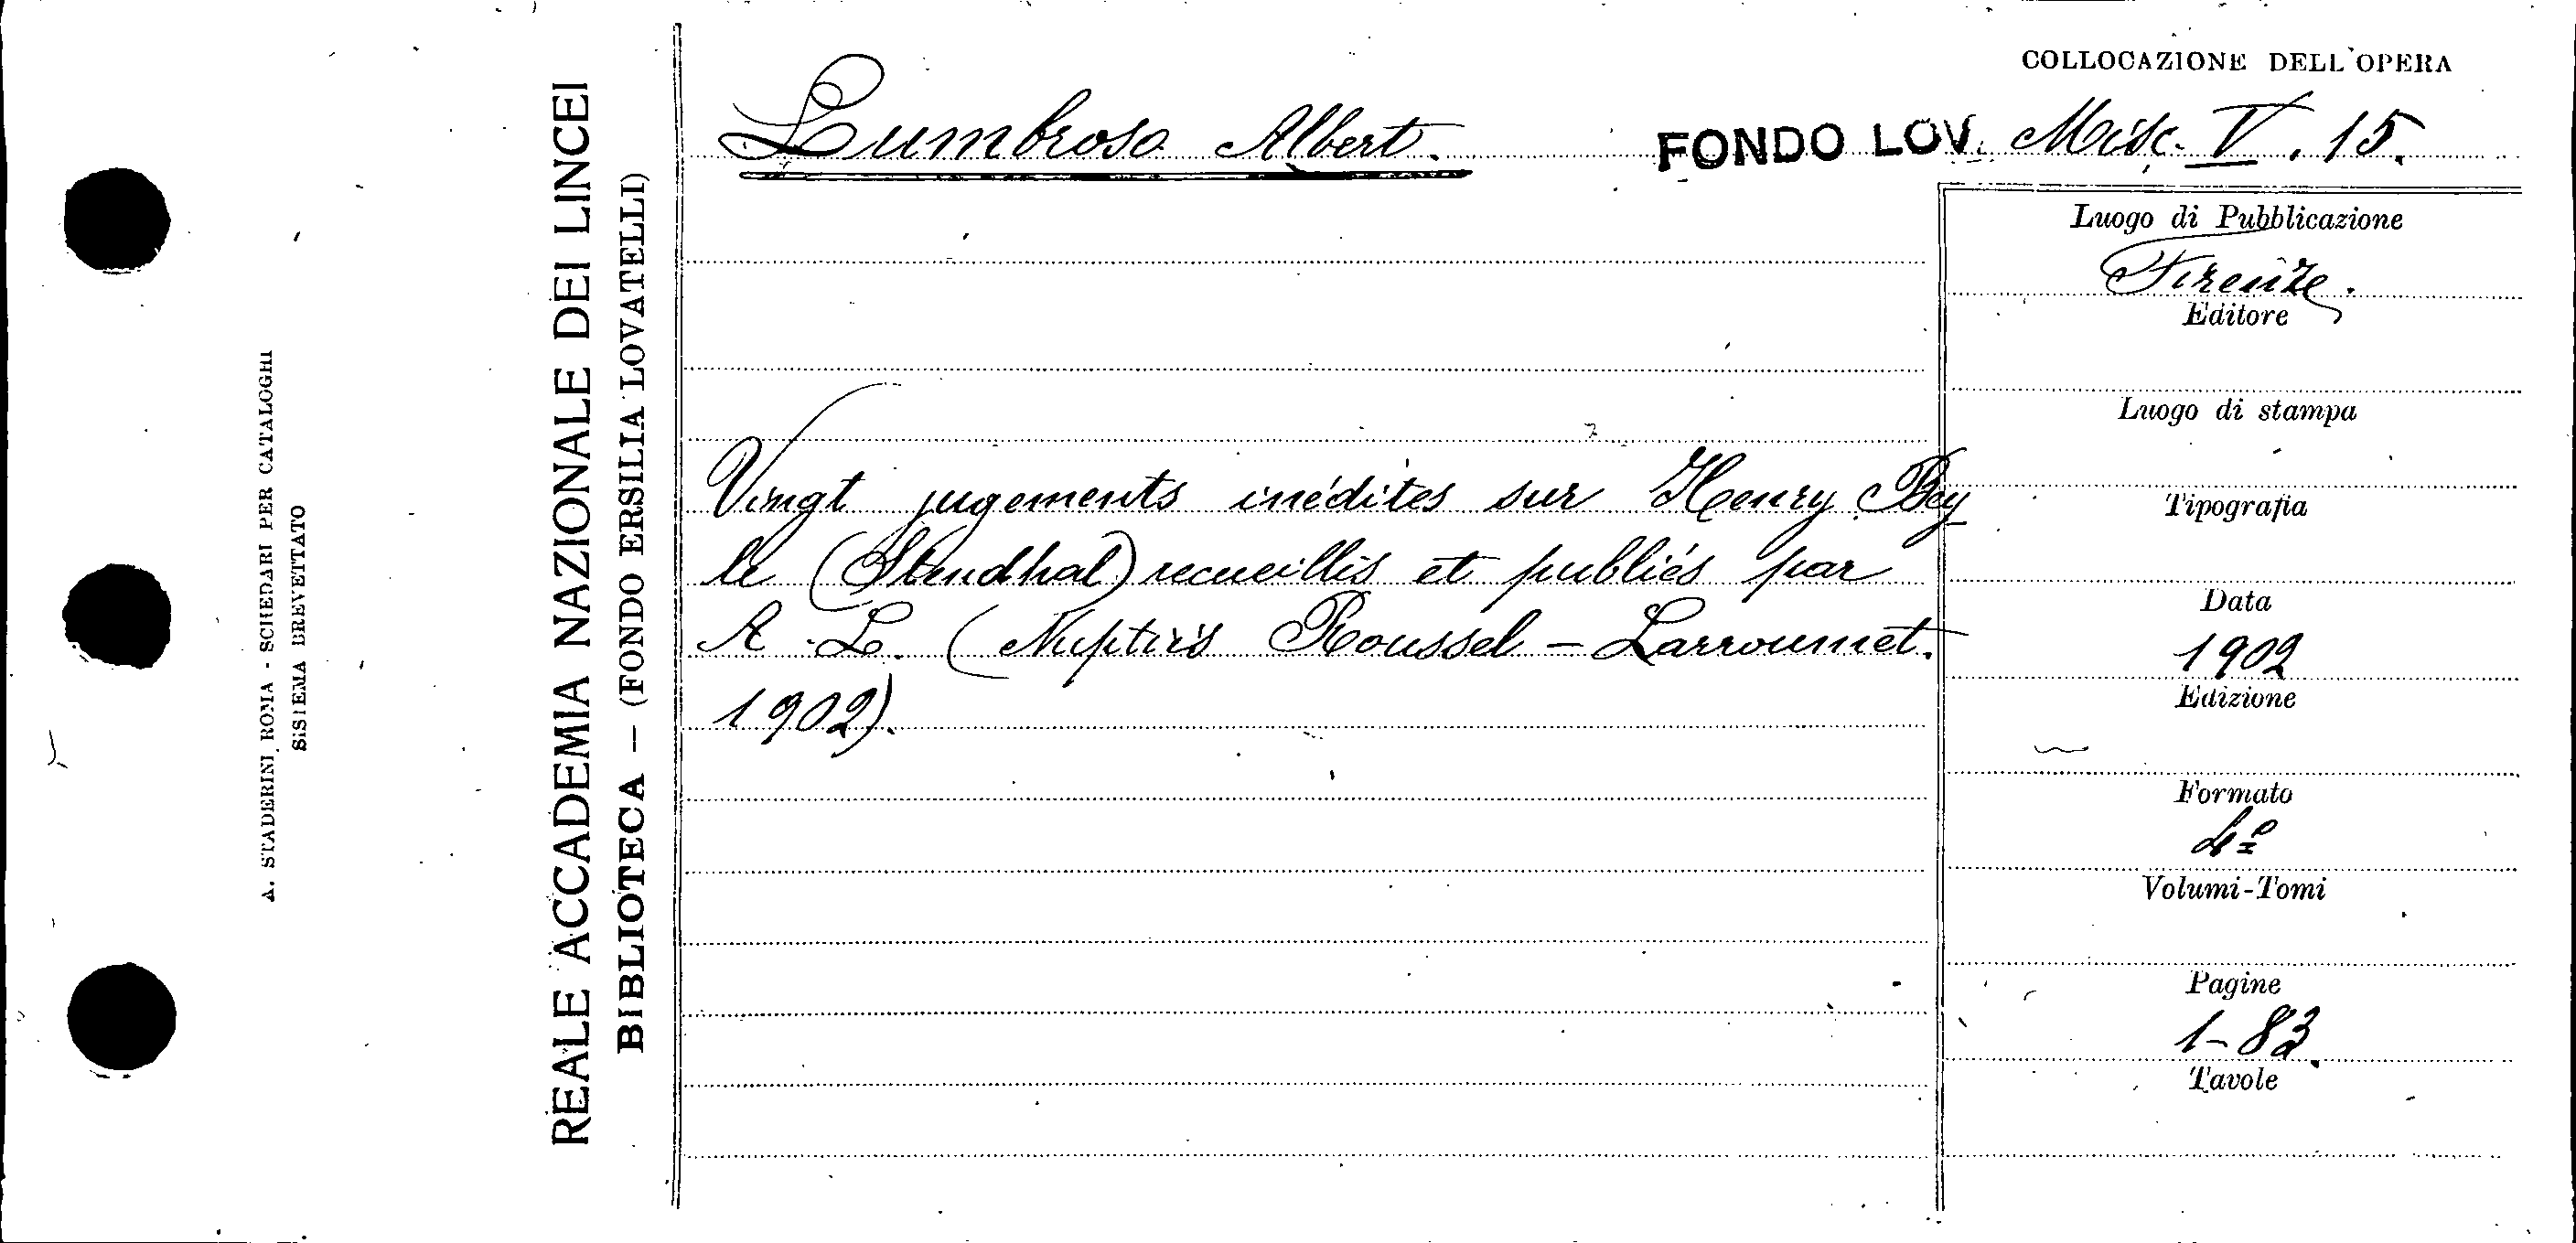 COLLOCAZIONE DELL'OPERA
Lumbroso Albert.
FONDO LOV. Misc. V. 15.
Vingt jugements inédites sur Henry Bey
le (Stendhal) recueillis et publiés par
A. L. (Nuptiis Roussel - Larroumet.
1902).
Luogo di Pubblicazione
Firenze.
Editore
Luogo di stampa
Tipografia
Data
1902
Edizione
Formato
4º
Volumi-Tomi
Pagine
1-83.
Tavole
REALE ACCADEMIA NAZIONALE DEI LINCEI
BIBLIOTECA — (FONDO ERSILIA LOVATELLI)
A. STADERINI ROMA - SCHEDARI PER CATALOGHI
SISTEMA BREVETTATO